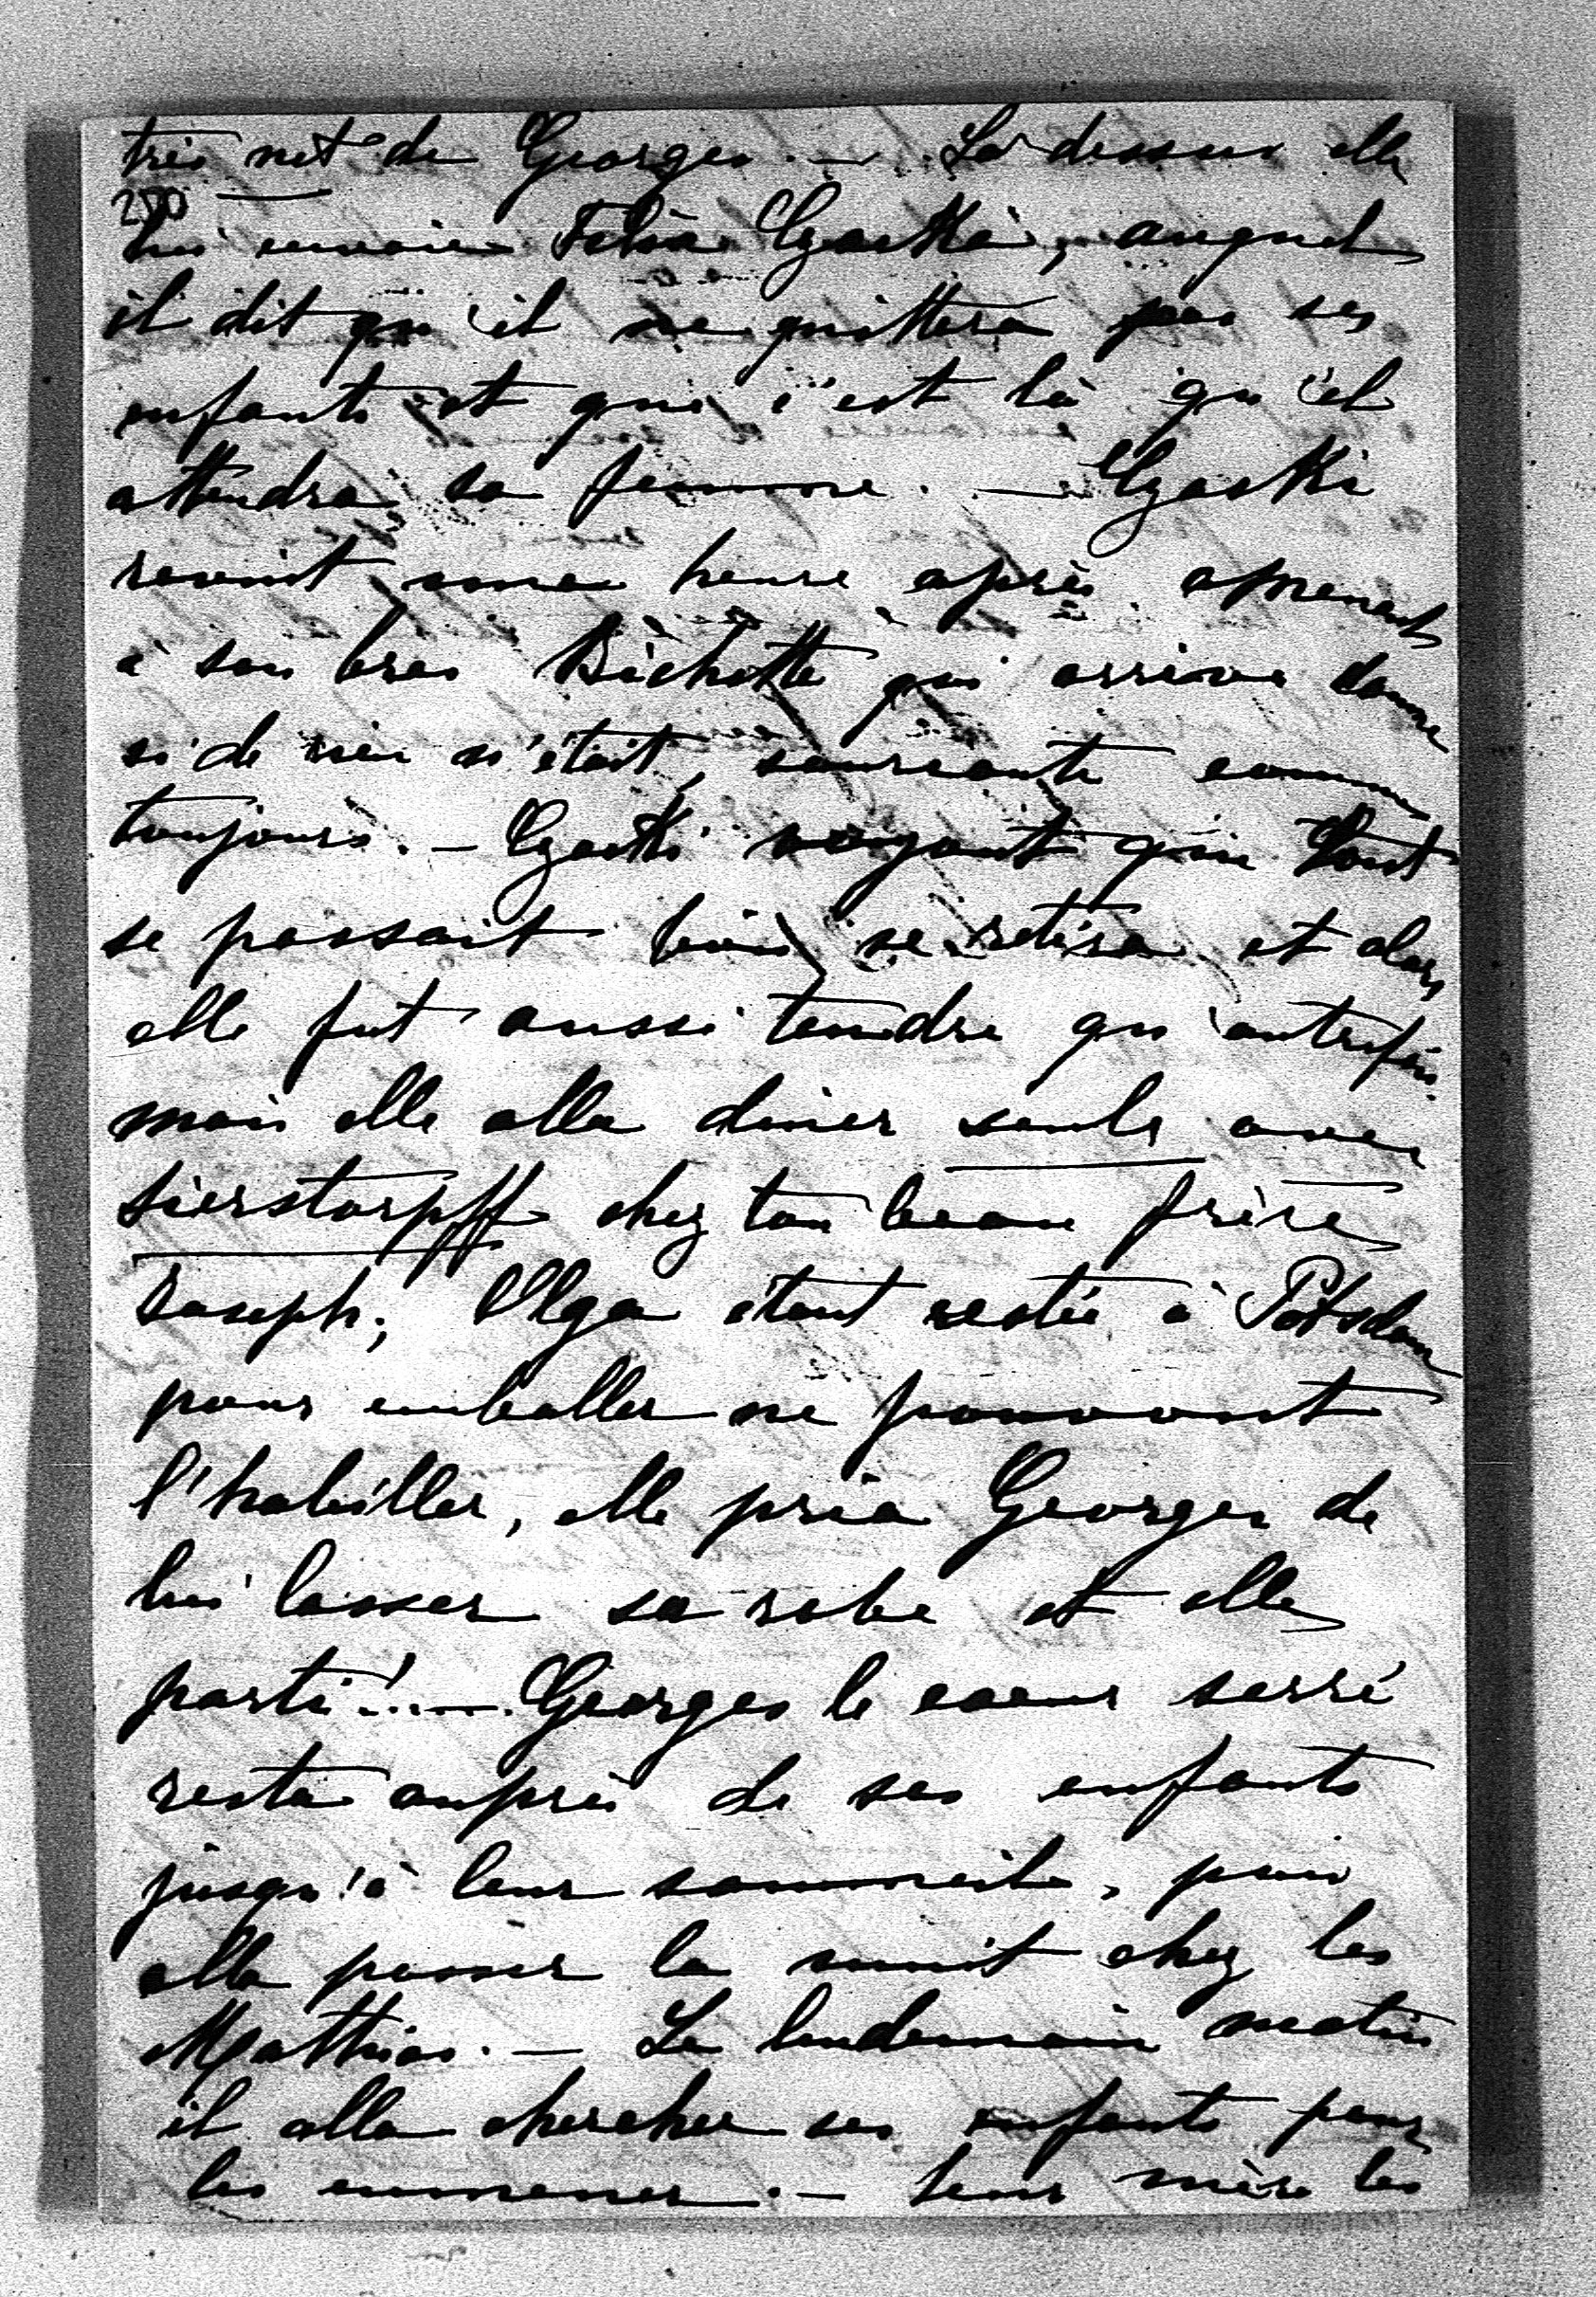 très net de Georges. — Là dessus elle
280
lui envoie Félix Czaski, auquel
il dit qu'il ne quittera pas ses
enfants et que c'est là qu'il
attendra sa femme. — Czaski
revint une heure après amenant
à son bras Bichette qui arrive comme
si de rien n'était, souriante comme
toujours. — Czaski voyant que tout
se passait bien se retira et alors
elle fut aussi tendre qu'autrefois
mais elle alla diner seule avec
Sierstorpff chez ton beau frère
Joseph; Olga étant restée à Potsdam
pour emballer ne pouvant
l'habiller, elle pria Georges de
lui lasser sa robe et elle
parti!... — Georges le coeur serré
resta auprès de ses enfants
jusqu'à leur sommeil, puis
alla passer la nuit chez les
Matthias. — Le lendemain matin
il alla chercher ses enfants pour
les emmener. — leur mère les